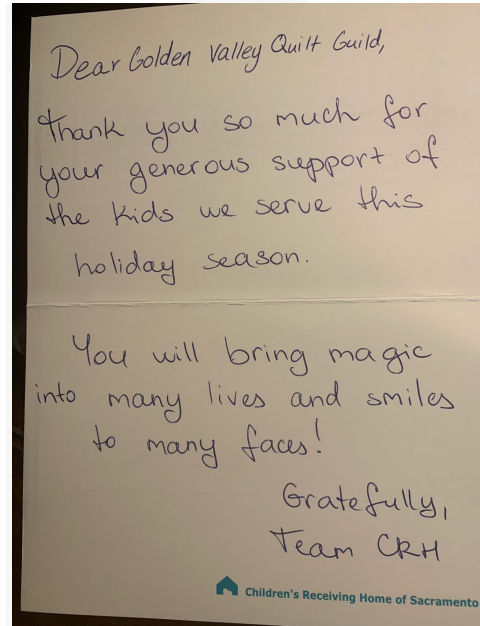 Dear Golden Valley Quilt Guild,
Thank you so much for
your generous support of
the kids we serve this
holiday season.
You will bring magic
into many lives and smiles
to many faces!
Gratefully,
Team CRH
Children's Receiving Home of Sacramento